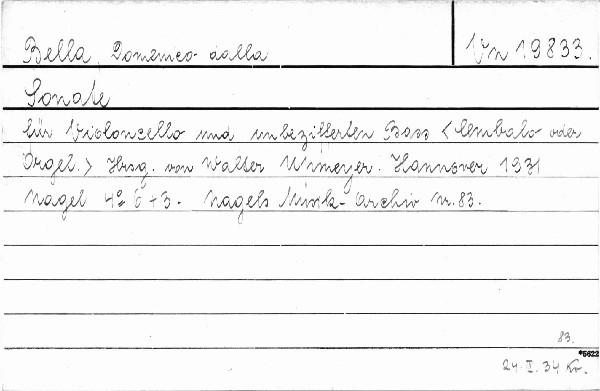 Bella, Domenico dalla
Vn 19833.
Sonate
für Violoncello und unbezifferten Bass <Cembalo oder
Orgel.> Hrsg. von Walter Upmeyer. Hannover 1931
Nagel 4º 6+3. Nagels Musik-Archiv Nr. 83.
83.
*5622
24. I. 34 Kr.